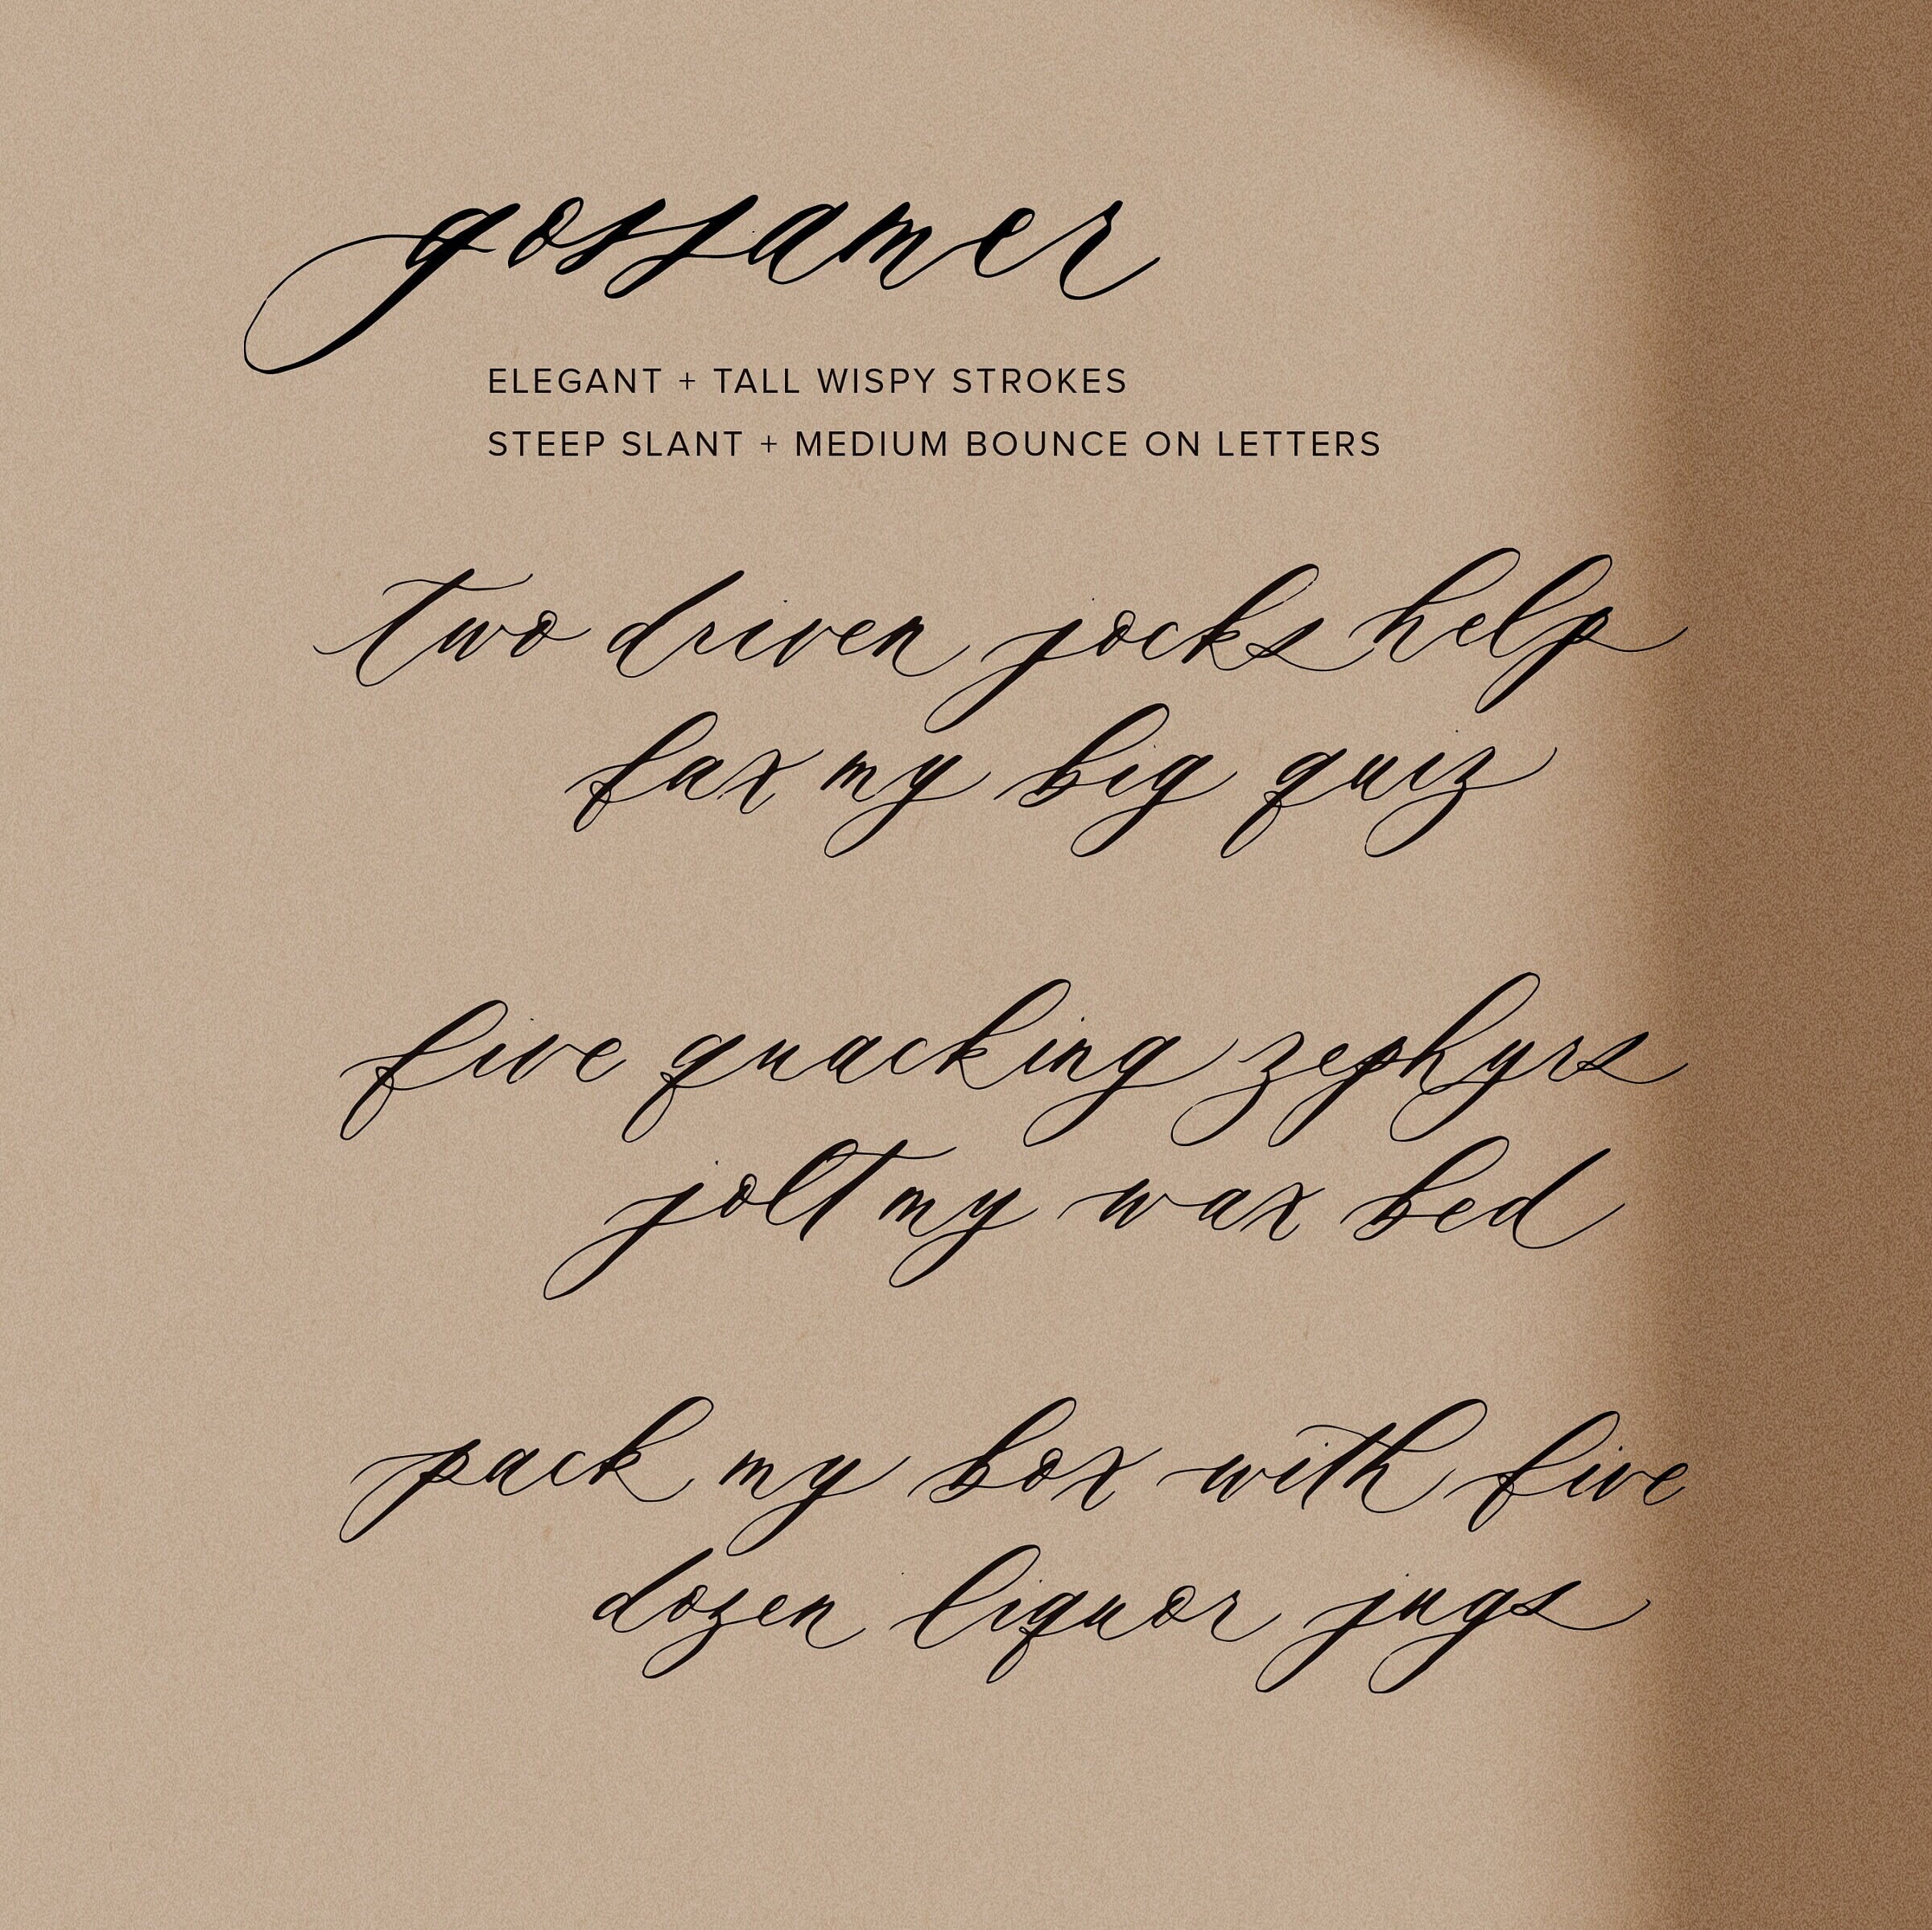 gossamer
ELEGANT + TALL WISPY STROKES
STEEP SLANT + MEDIUM BOUNCE ON LETTERS
two driven jocks help
fax my big quiz
five quacking zephyrs
jolt my wax bed
pack my box with five
dozen liquor jugs